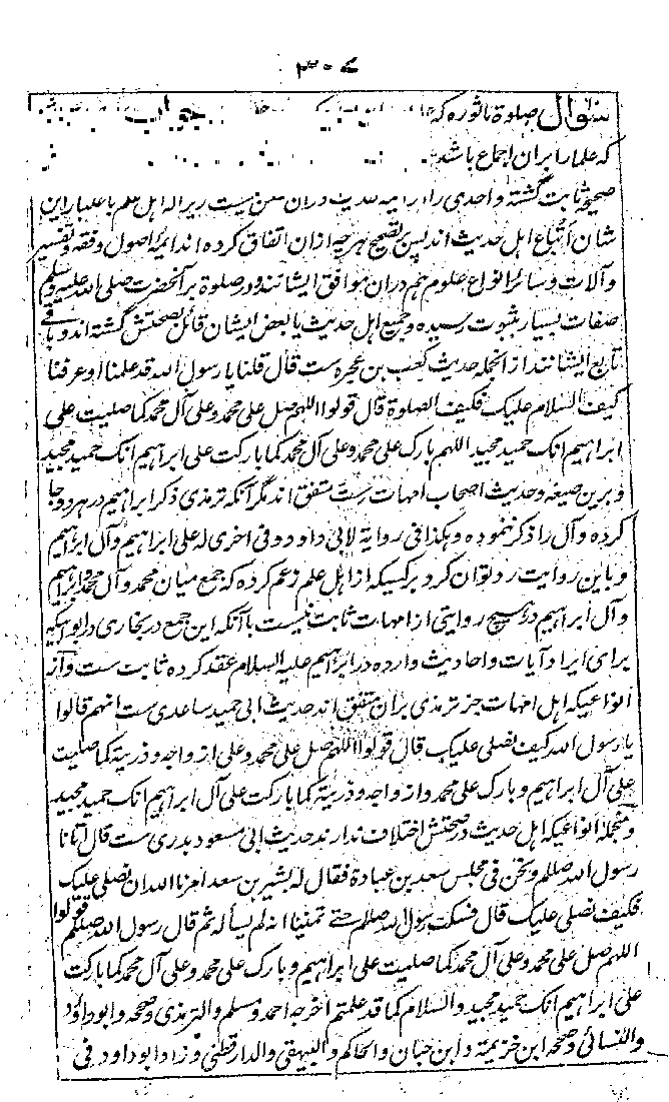 ٣٠٧
سوال صلوة ماثوره که جواب
که علما را بران اجماع باشد
صحیح ثابت گشته و احدی را از ائمه حدیث دران سخن نیست زیراکه اهل علم باعتبار این
شان اتباع اهل حدیث اند پس بتصحیح هرچه ازان اتفاق کرده اند ائمه اصول و فقه و تفسیر
و آلات و سائر انواع علوم هم دران موافق ایشانند و در صلوة بر آنحضرت صلی الله علیه وسلم
صفات بسیار بثبوت رسیده و جمیع اهل حدیث یا بعض ایشان قائل بصحتش گشته اند و باقی
تابع ایشانند از انجمله حدیث کعب بن عجره ست قال قلنا یا رسول الله قد علمنا او عرفنا
کیف السلام علیک فکیف الصلوة قال قولوا اللهم صل علی محمد و علی آل محمد کما صلیت علی
ابراهیم انک حمید مجید اللهم بارک علی محمد و علی آل محمد کما بارکت علی ابراهیم انک حمید مجید
و برین صیغه و حدیث اصحاب امهات ست متفق اند مگر آنکه ترمذی ذکر ابراهیم در هر دو جا
کرده و آل را ذکر ننموده و هکذا فی روایة لابی داود و فی اخری له علی ابراهیم و آل ابراهیم
و باین روایت رد توان کرد بر کسیکه از اهل علم زعم کرده که جمع میان محمد و آل محمد و ابراهیم
و آل ابراهیم در هیچ روایتی از امهات ثابت نیست با آنکه این جمع در بخاری در ابوابیکه
برای ایراد آیات و احادیث وارده در ابراهیم علیه السلام عقد کرده ثابت ست و از
انواعیکه اهل امهات جز ترمذی بران متفق اند حدیث ابی حمید ساعدی ست انهم قالوا
یا رسول الله کیف نصلی علیک قال قولوا اللهم صل علی محمد و علی ازواجه و ذریته کما صلیت
علی آل ابراهیم و بارک علی محمد و ازواجه و ذریته کما بارکت علی آل ابراهیم انک حمید مجید
و منجمله انواعیکه اهل حدیث در صحتش اختلاف ندارند حدیث ابی مسعود بدری ست قال اتانا
رسول الله صللم و نحن فی مجلس سعد بن عبادة فقال له بشیر بن سعد امرنا الله ان نصلی علیک
فکیف نصلی علیک قال فسکت رسول الله صللم حتی تمنینا انه لم یسأله ثم قال رسول الله صللم قولوا
اللهم صل علی محمد و علی آل محمد کما صلیت علی ابراهیم و بارک علی محمد و علی آل محمد کما بارکت
علی ابراهیم انک حمید مجید والسلام کما قد علمتم اخرجه احمد و مسلم والترمذی و صححه و ابو داود
والنسائی و صححه ابن خزیمة و ابن حبان والحاکم والبیهقی والدارقطنی و زاد ابو داود فی